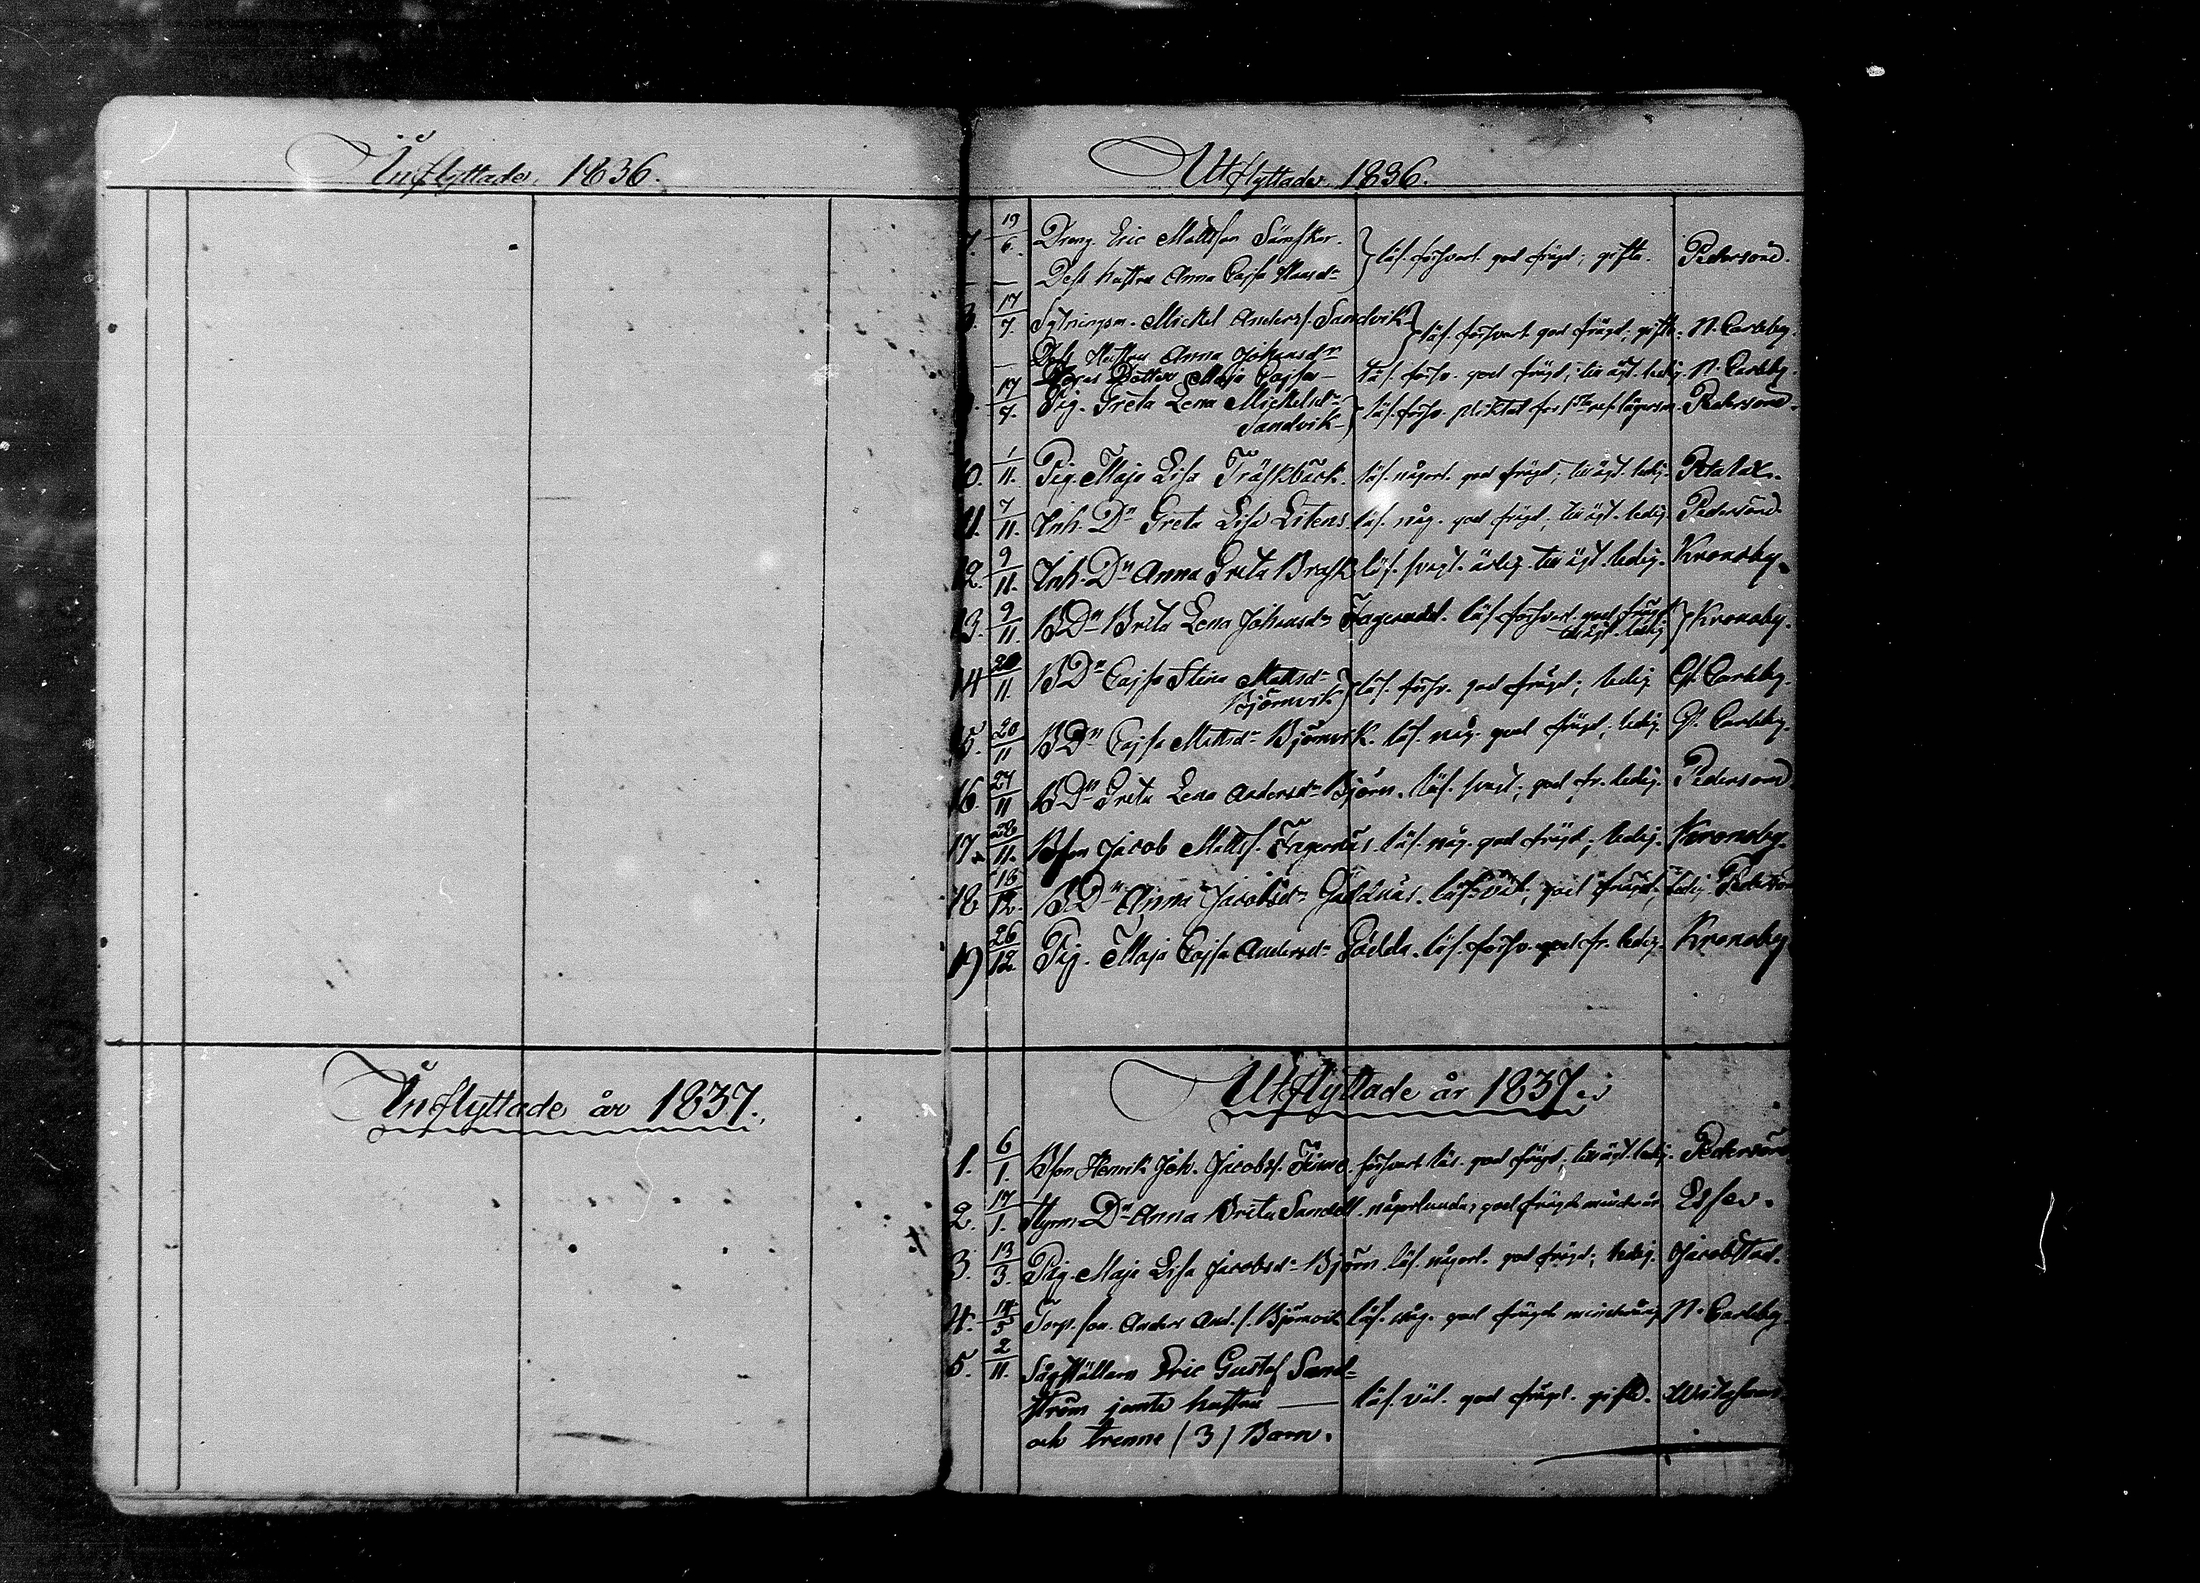 Inflyttade 1836.
Utflyttade 1836.
7. 19/6. Dreng. Eric Mattsson läs. försvarl. god frägd; gifta. Pedersöre.
— — Dess hustru Anna Cajsa
17/7. Sytningsm. Mickel Anders. Sandvik läs. försvarl. god frägd; gifta. N. Carleby.
— Dess Hustru Anna Johansdr
Deras Dotter Maja Cajsa — läs. försv. god frägd; till ägt. ledig. N. Carleby.
17/7. Pig. Greta Lena Mickelsdr läs. försv. pliktat för lägersm. Pedersöre.
Sandvik
10. 1/11. Pig. Maja Lisa Träskbäck. läs. någorl. god frägd; till ägt. ledig. Petalax.
11. 7/11. Inh. Dr Greta Lisa Litens. läs. någ. god frägd; till ägt. ledig. Pedersöre.
12. 9/11. Inh. Dr Anna Greta Brask läs. svagt. ärlig. till ägt. ledig. Kronoby.
13. 9/11. BDr Brita Lena Johansdr Fagerudd. läs. försvarl. god frägd Kronoby.
till ägt. ledig
14 20/11. BDr Cajsa Stina Mattsdr läs. försv. god frägd; ledig Gl. Carleby.
Björnvik
15. 20/11 BDr Cajsa Mattsdr Björnvik. läs. någ. god frägd; ledig. Gl. Carleby.
16. 27/11 BDr Greta Lena Andersdr Björn. läs. svagt; god fr. ledig. Pedersöre
17. 28/11. Bson Jacob Matts. Fagernäs. läs. någ. god frägd; ledig. Kronoby.
18 18/12. BDr Anna Jacobsdr läs. väl; god frägd; ledig. Pedersöre
19 26/12. Pig. Maja Cajsa Andersdr Gädda. läs. försv. god fr. ledig. Kronoby
Inflyttade år 1837.
Utflyttade år 1837.
1. 6/1. Bson Henrik Joh. Jacobs. försvarl. läs. god frägd; till ägt. ledig. Pedersöre
2. 17/1. Styrm. Dr Anna Brita Sandell. någorlunda; god frägd minderår Esse.
3. 13/3. Pig. Maja Lisa Jacobsdr Björn läs. någorl. god frägd; ledig. Jacobstad.
4. 14/5 Torp. son. Anders And. s. Björnvik läs. någ. god frägd minderårig N. Carleby
5. 2/11. Eric Gustaf Sand=
ström jemte hustru — läs. väl. god frägd. gift.
och trenne (3) Barn.